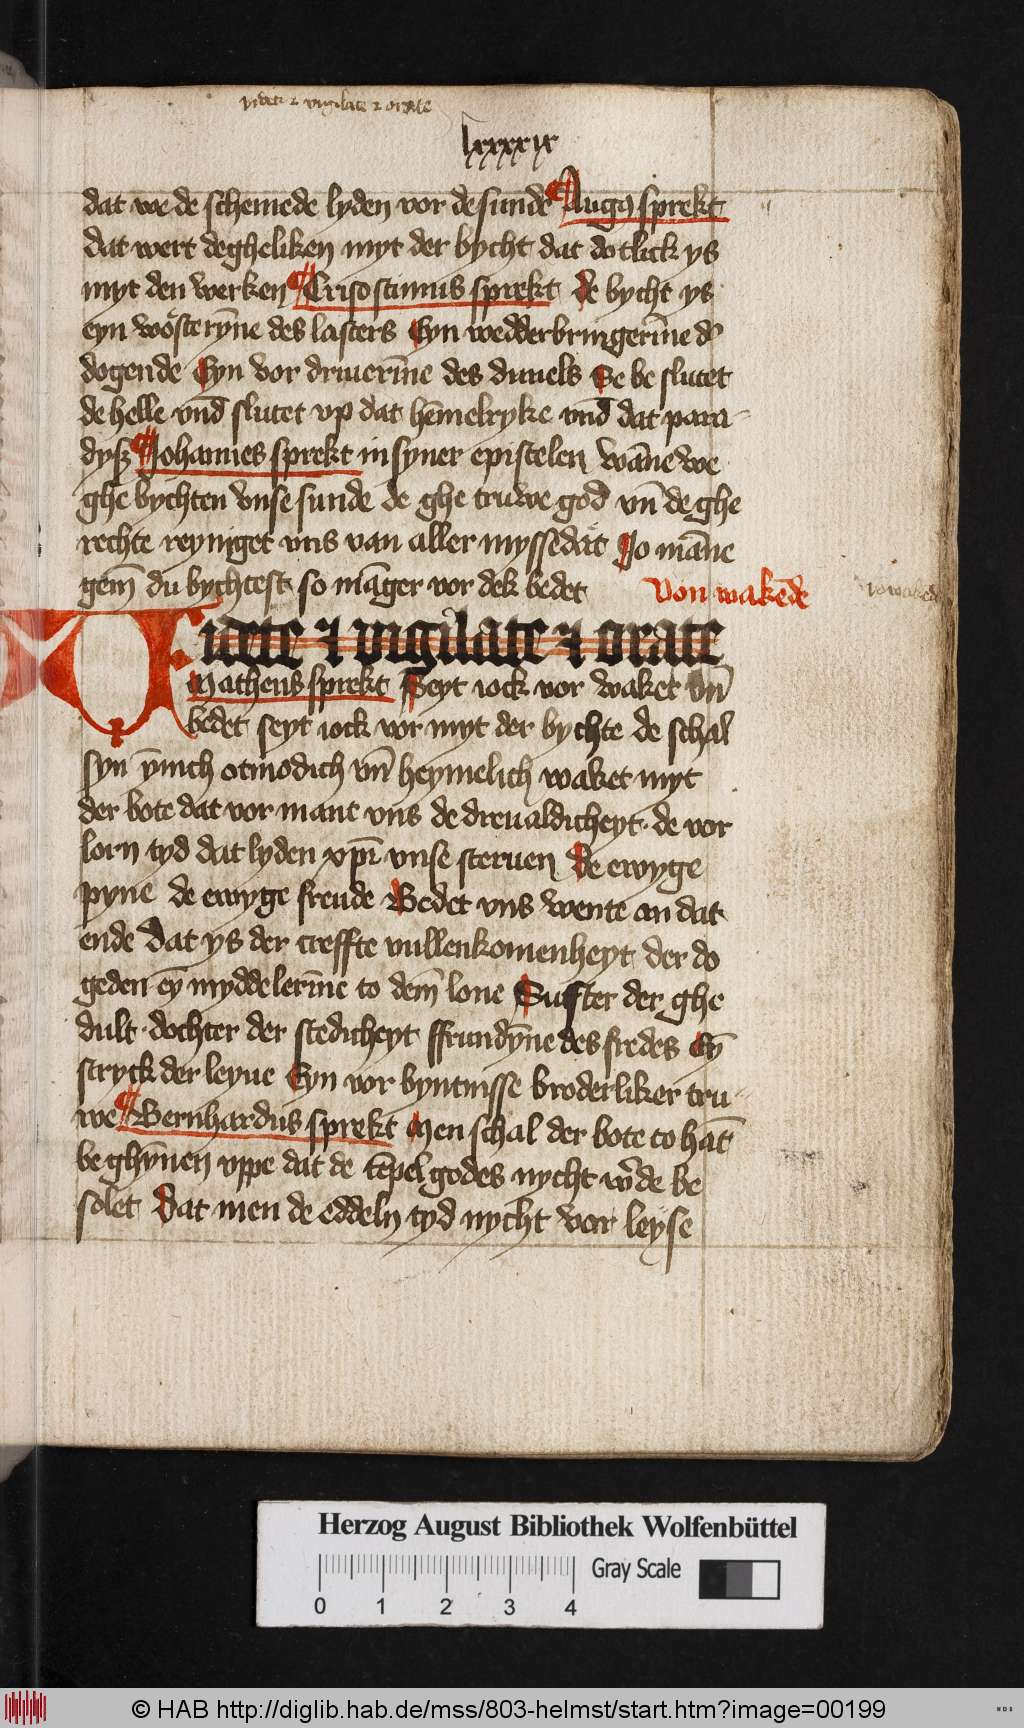 videte et vigilate et orate
lxxxxix
dat we de schemede lyden vor de sunde Augus sprekt
dat wert degheliken myt der bycht dat dotlick ys
myt den werken Crisostimus sprekt de bycht ys
eyn wösterȳne des lasters Eyn wedderbringerīne d'
dogende Eyn vor driuerīne des duuels Se be slutet
de helle vnd slutet vp dat hēmelryke vnd dat para-
dyß Johannes sprekt in syner epistelen wāne we
ghe bychten vnse sunde de ghe truwe god vn̄ de ghe
rechte reyniget vns van aller myssedat Jo māne
gem̄ du bychtest so mānger vor dek bedet Von wakēde
Videte et vigilate et orate
Matheus sprekt Seyt iock vor waket vn̄
bedet seyt iock vor myt der bychte de schal
syn ȳnich otmodich vn̄ heymelich waket myt
der bote dat vor mant vns de dreualdicheyt· de vor
lorn tyd dat lyden xpī vnse steruen De ewyge
pyne de ewyge freude Bedet vns wente an dat
ende Dat ys der creffte vullenkomenheyt der do
geden eȳ myddelerīne to dem̄ lone Suster der ghe
dult· dochter der stedicheyt ffrundȳne des fredes Eȳ
stryck der leyue Eyn vor byntnisse broderliker tru-
we Bernhardus sprekt Men schal der bote to hāt
be ghȳnen vppe dat de tēpel godes nycht w'de be
solet Dat men de eddeln tyd nycht vor leyse
Herzog August Bibliothek Wolfenbüttel
Gray Scale
0 1 2 3 4
© HAB http://diglib.hab.de/mss/803-helmst/start.htm?image=00199